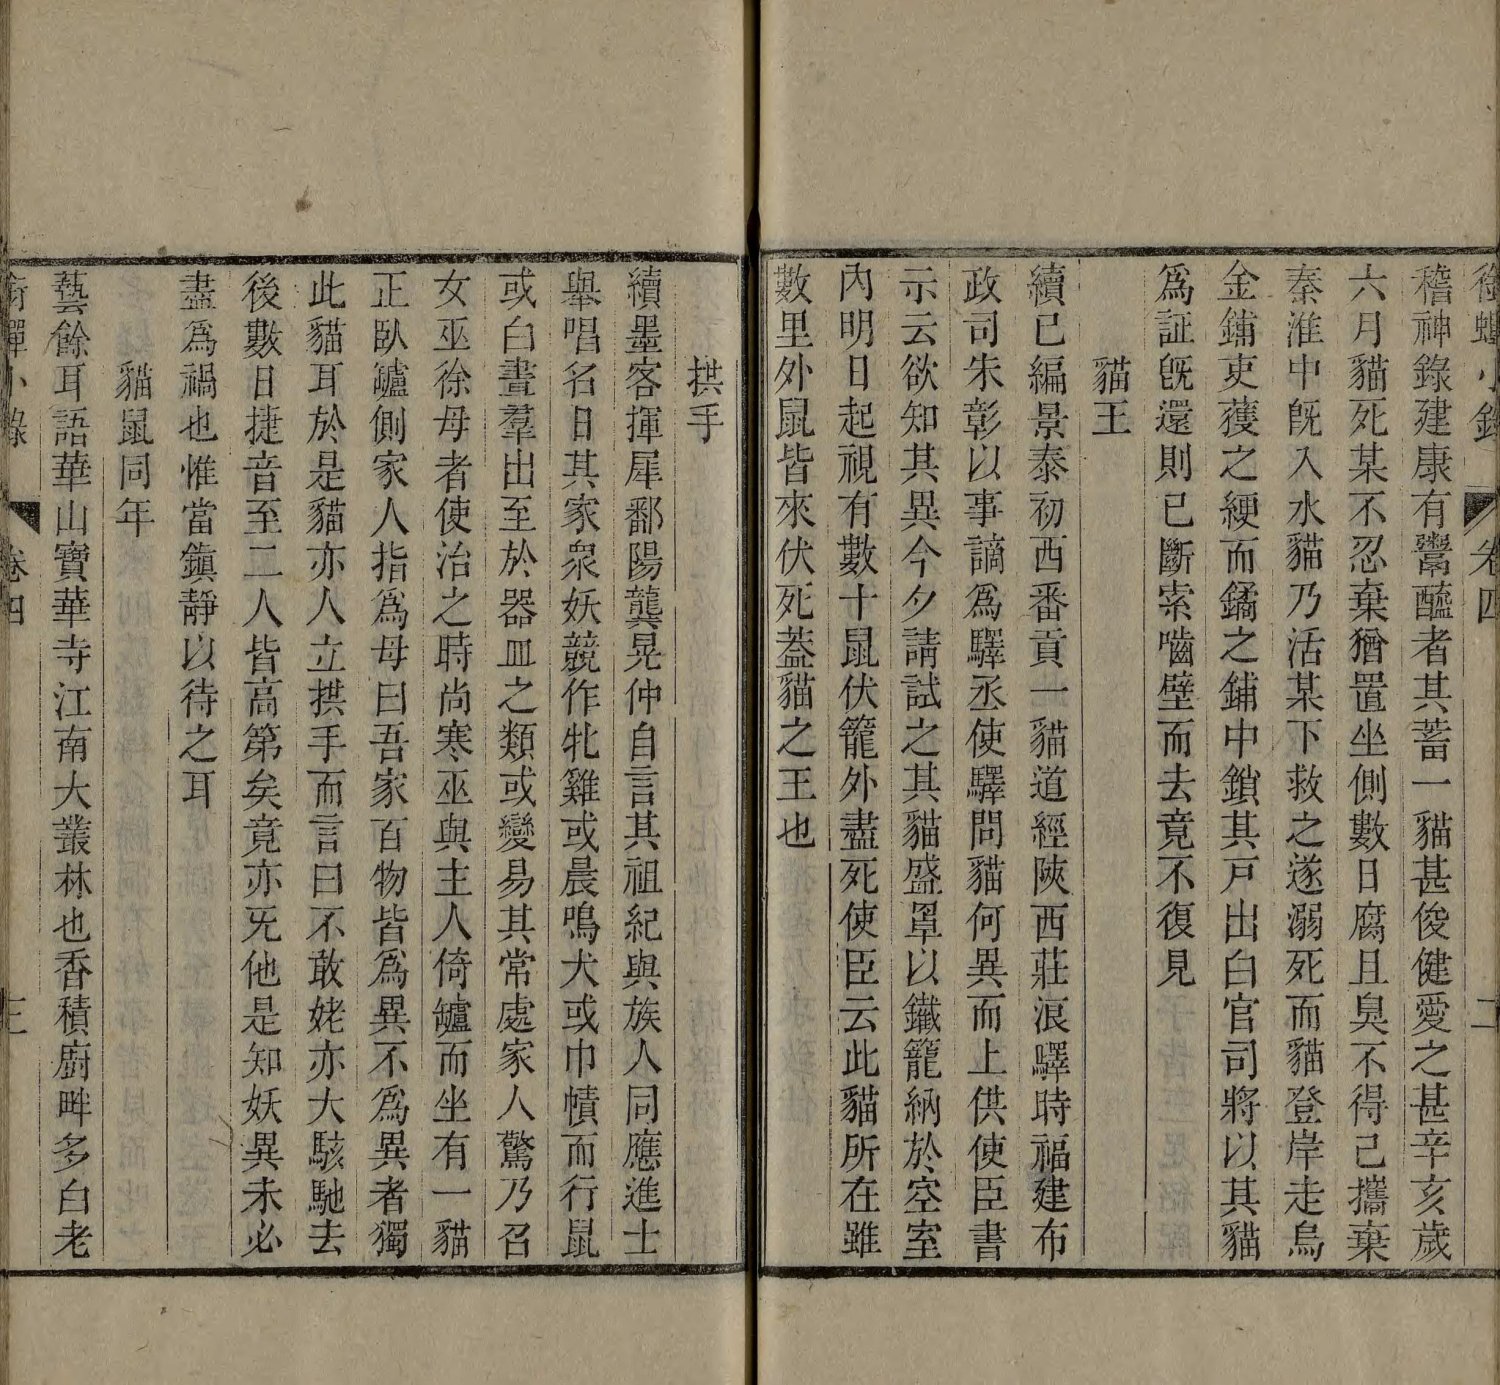 銜蟬小錄 卷四 二
稽神錄建康有鬻醯者其蓄一貓甚俊健愛之甚辛亥歲
六月貓死某不忍棄猶置坐側數日腐且臭不得已攜棄
秦淮中旣入水貓乃活某下救之遂溺死而貓登岸走烏
金鋪吏獲之綆而鐍之鋪中鎖其戸出白官司將以其貓
爲証旣還則已斷索嚙壁而去竟不復見
貓王
續已編景泰初西番貢一貓道經陜西莊浪驛時福建布
政司朱彰以事謫爲驛丞使驛問貓何異而上供使臣書
示云欲知其異今夕請試之其貓盛罩以鐵籠納於空室
內明日起視有數十鼠伏籠外盡死使臣云此貓所在雖
數里外鼠皆來伏死葢貓之王也
拱手
續墨客揮犀鄱陽龔晃仲自言其祖紀與族人同應進士
舉唱名日其家衆妖競作牝雞或晨鳴犬或巾幘而行鼠
或白晝羣出至於器皿之類或變易其常處家人驚乃召
女巫徐母者使治之時尚寒巫與主人倚罏而坐有一貓
正臥罏側家人指爲母曰吾家百物皆爲異不爲異者獨
此貓耳於是貓亦人立拱手而言曰不敢姥亦大駭馳去
後數日捷音至二人皆高第矣竟亦旡他是知妖異未必
盡爲禍也惟當鎭靜以待之耳
貓鼠同年
藝餘耳語華山寶華寺江南大叢林也香積廚畔多白老
銜蟬小錄 卷四 三